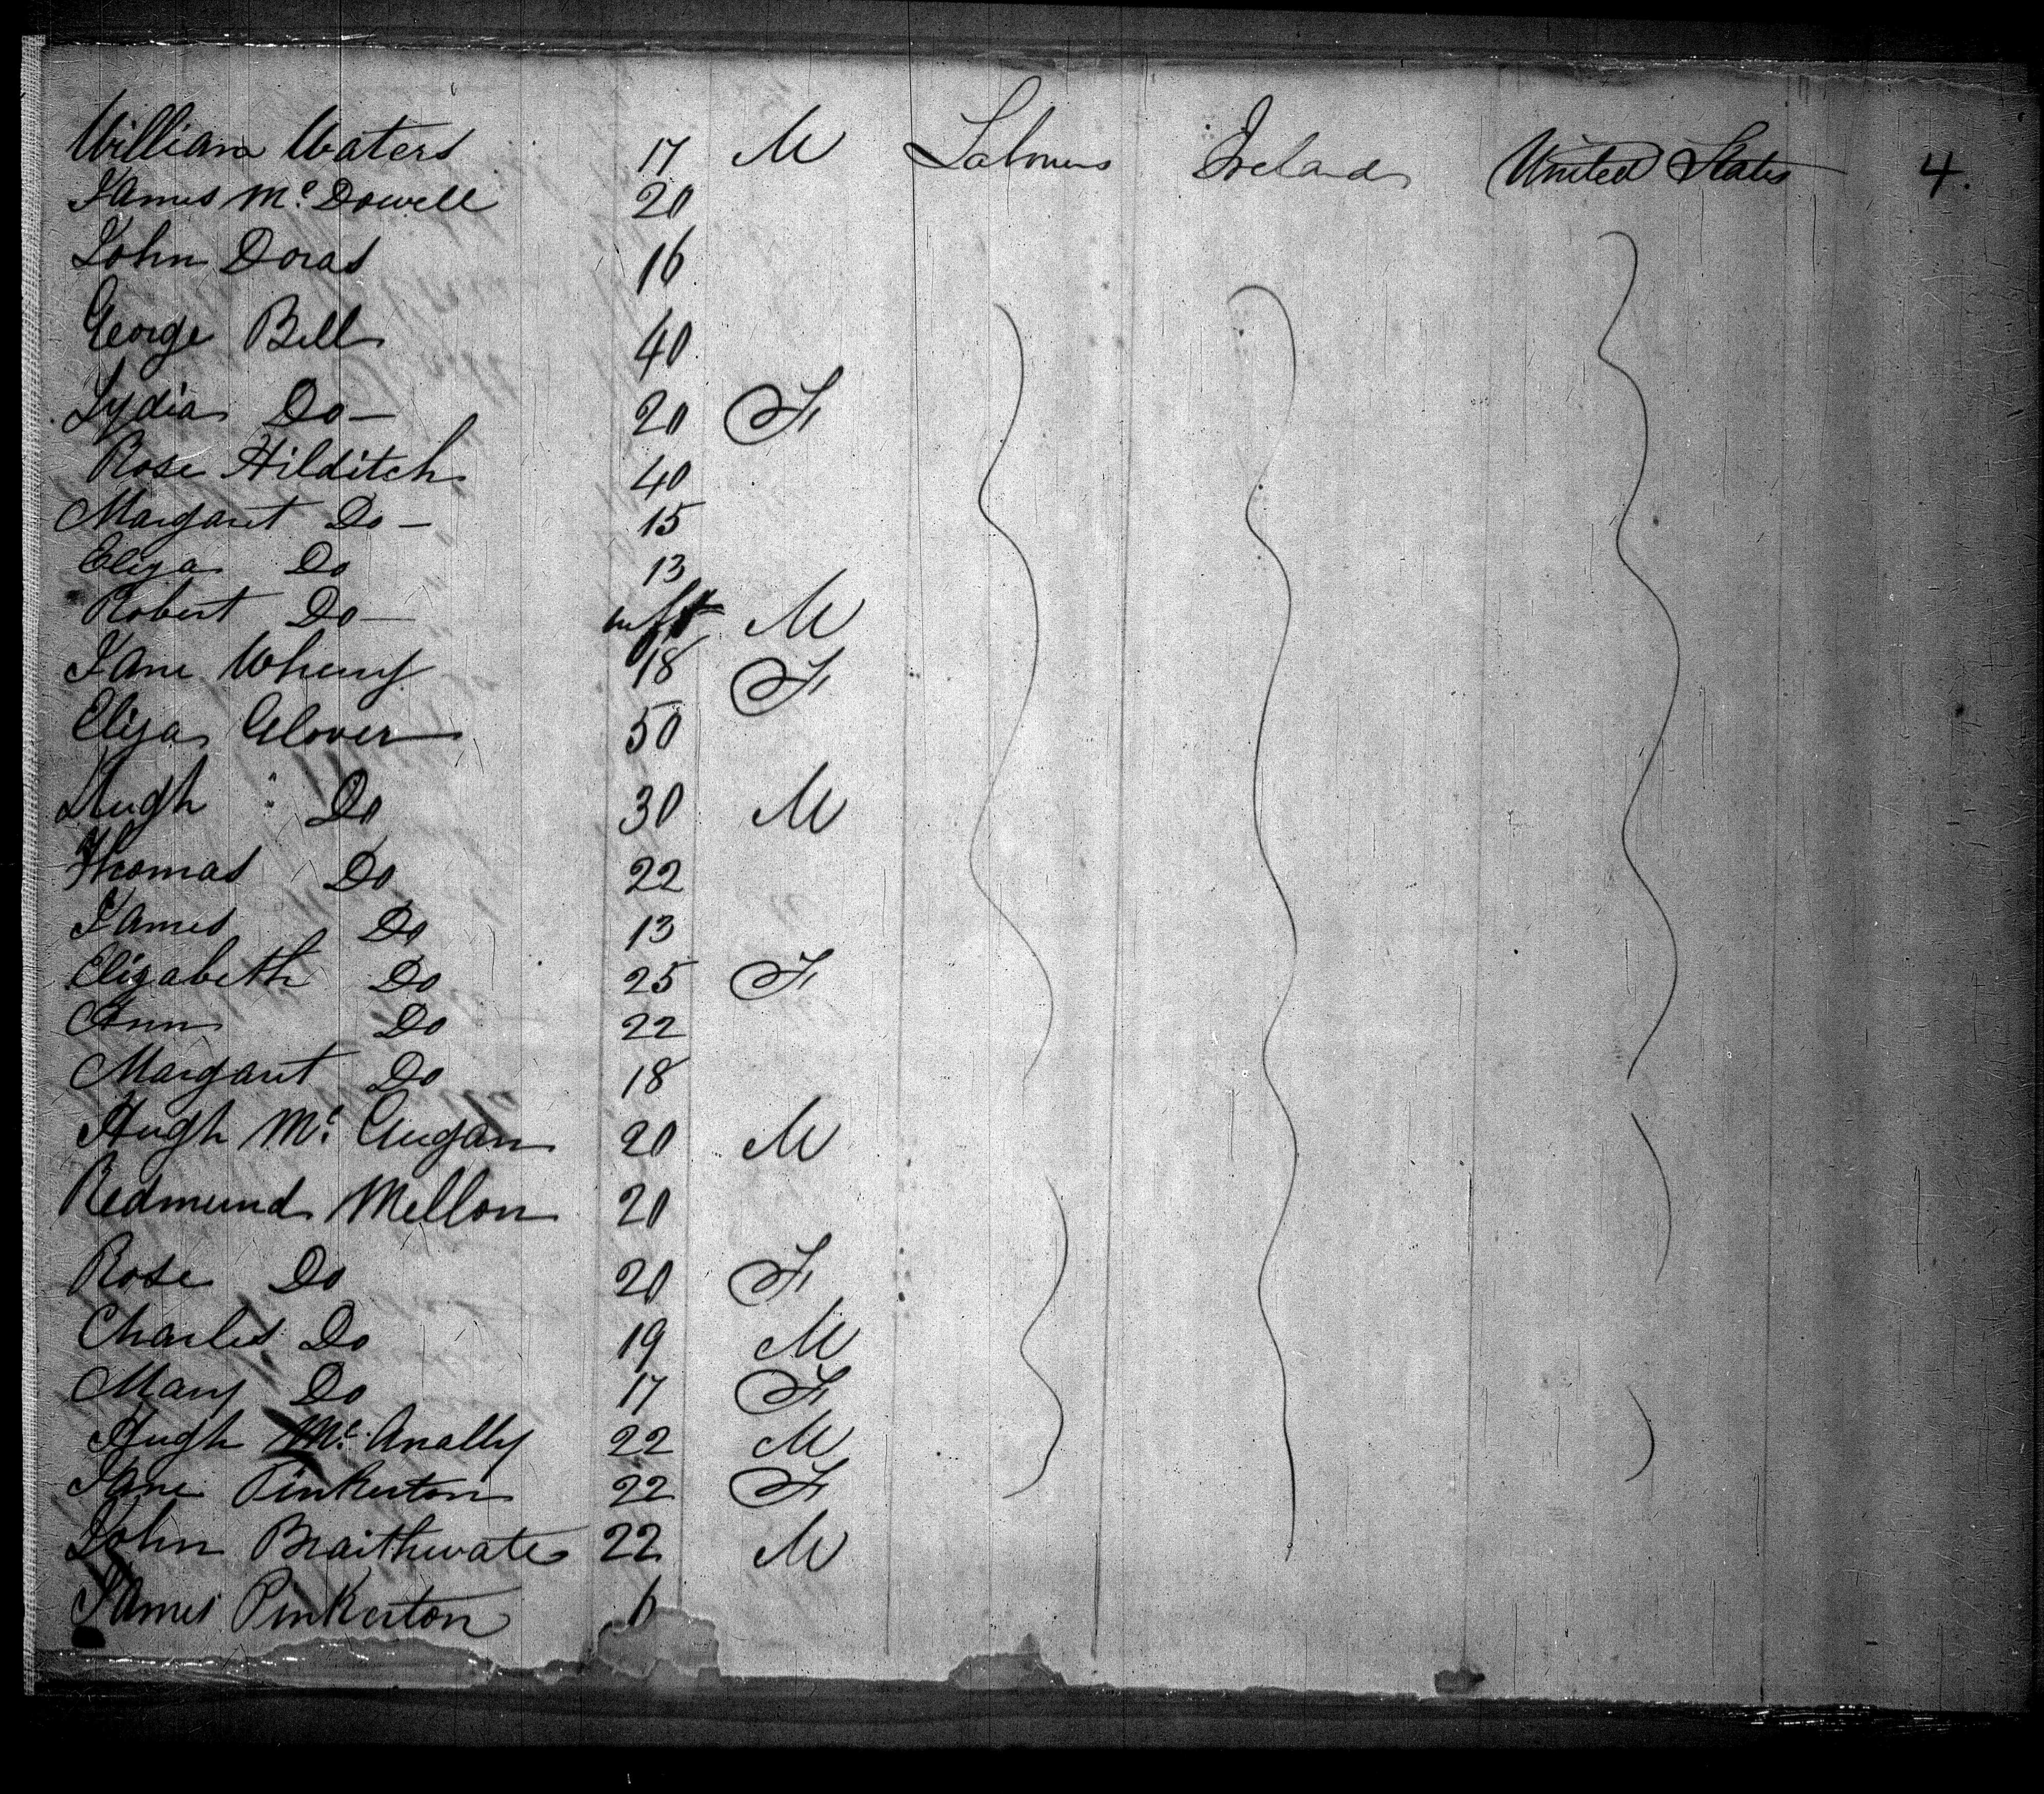 William Waters 17 M Labourers Ireland United States 4.
James Mc Dowell 20
John Doras 16
George Bell 40
Lydia Do — 20 F
Rose Hilditch 40
Margaret Do — 15
Eliza Do 13
Robert Do — inft M
Jane Wherry 18 F
Eliza Glover 50
Hugh Do 30 M
Thomas Do 22
James Do 13
Elizabeth Do 25 F
Ann Do 22
Margaret Do 18
Hugh Mc Gugan 20 M
Redmund Mellon 20
Rose Do 20 F
Charles Do 19 M
Mary Do 17 F
Hugh Mc Anally 22 M
Jane Pinkerton 22 F
John Braithwate 22 M
James Pinkerton 6